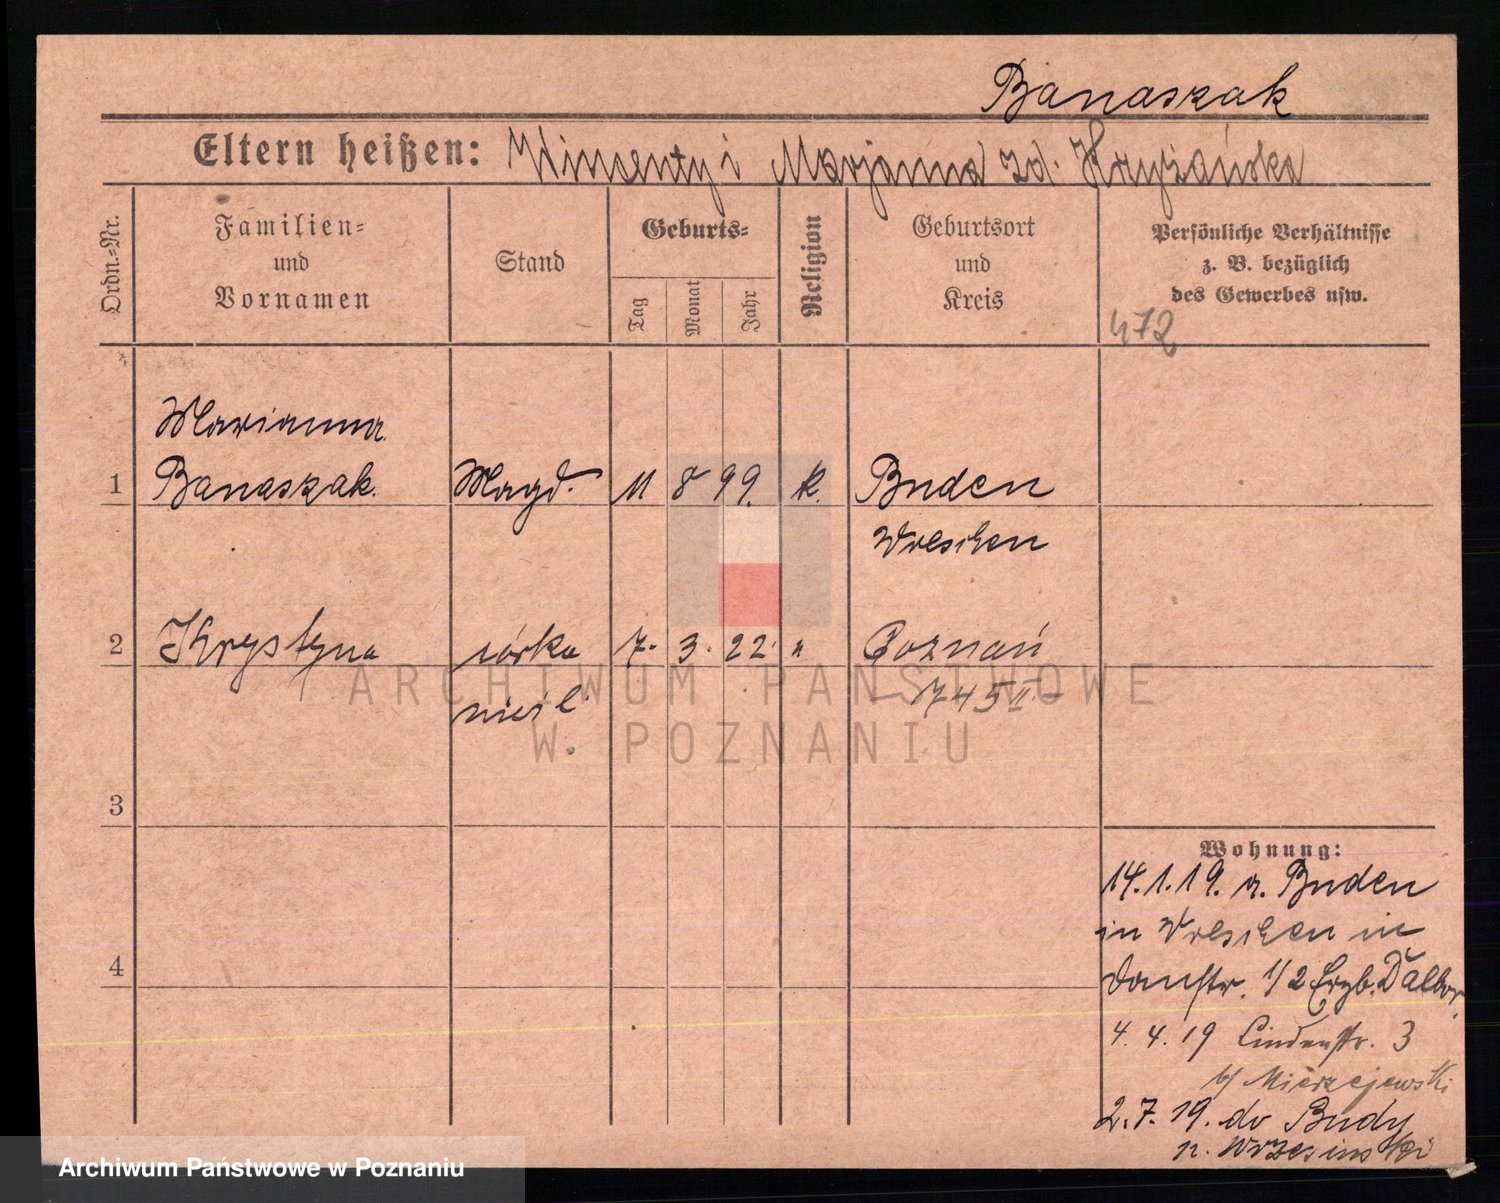 Banaszak
Eltern heißen: Wincenty i Marjanna zd. Kryżańska
Ordn.-Nr.
Familien-
und
Vornamen
Stand
Geburts-
Tag
Monat
Jahr
Religion
Geburtsort
und
Kreis
Persönliche Verhältnisse
z. B. bezüglich
des Gewerbes usw.
472
Marianna
1 Banaszak. Magd. 11 8 99. k. Buden
Wreschen
2 Krystyna córka 7. 3. 22. " Poznań
nieśl. 1745 II
ARCHIWUM PAŃSTWOWE
W POZNANIU
3
4
Wohnung:
14.1.19. v. Buden
in Wreschen in
Domstr. 1/2 Erzb. Dalbor,
4. 4. 19 Lindenstr. 3
b/ Mierzejewski
2.7.19. do Budy
p. Wrzesiński
Archiwum Państwowe w Poznaniu